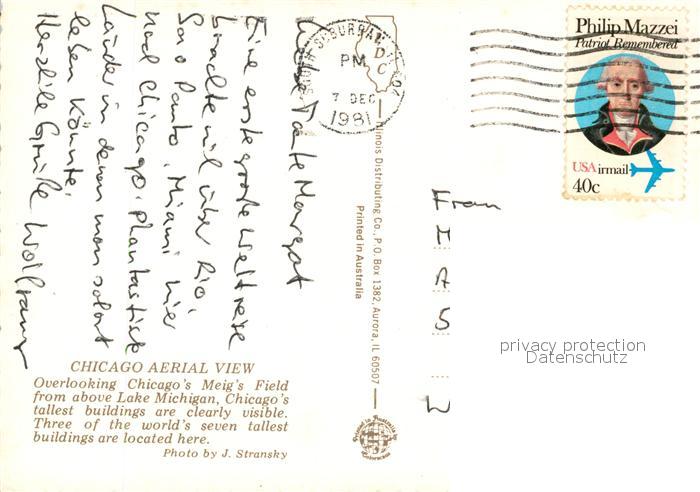 Liebe Tante Margot
Eine erste große Weltreise
brachte mich über Rio,
Sao Paulo, Miami hier
nach Chicago. Phantastisch
Länder in denen man sofort
leben könnte.
Herzliche Grüße Wolfram
CHICAGO AERIAL VIEW
Overlooking Chicago's Meig's Field
from above Lake Michigan, Chicago's
tallest buildings are clearly visible.
Three of the world's seven tallest
buildings are located here.
Photo by J. Stransky
Illinois Distributing Co., P.O. Box 1382, Aurora, IL 60507
Printed in Australia
SUBURBAN
PM
DC
7 DEC
1981
Philip Mazzei
Patriot Remembered
USAirmail
40c
Frau
M
A
S
W
privacy protection
Datenschutz